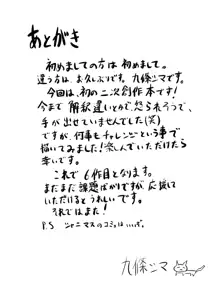 あとがき
初めましての方は初めまして。
違う方は、お久しぶりです。九條シマです。
今回は、初の二次創作本です！
今まで解釈違いとかで、怒られそうで、
手が出せていませんでした(笑)
ですが、何事もチャレンジという事で
描いてみました！楽しんでいただけたら
幸いです。
これで6作目となります。
まだまだ課題ばかりですが、応援して
いただけるとうれしいです。
それではまた！
P.S シャニマスのコミュはいいぞ。
九條シマ